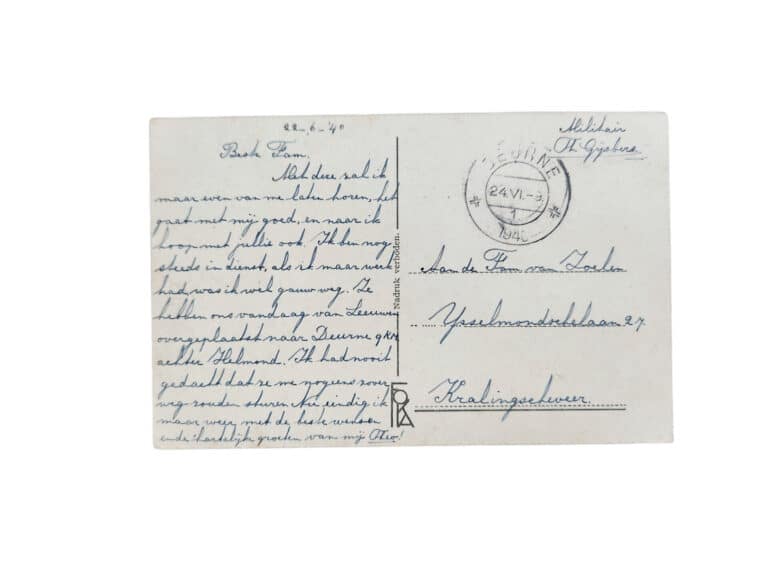 22-6-'40
Beste Fam,
Met deze zal ik
maar even van me laten horen, het
gaat met mij goed, en naar ik
hoop met jullie ook. Ik ben nog
steeds in dienst, als ik maar werk
had, was ik wel gauw weg. Ze
hebben ons vandaag van Leeuwen
overgeplaatst naar Deurne 9 KM
achter Helmond. Ik had nooit
gedacht dat ze me nog eens zover
weg zouden sturen Nu eindig ik
maar weer met de beste wensen
en de hartelijke groeten van mij Theo!
Nadruk verboden.
FORA
Militair
Th. Gijsbers
DEURNE
24.VI.-8.
1
1940
Aan de Fam van Zoelen
Ysselmondschelaan 27
Kralingscheveer.